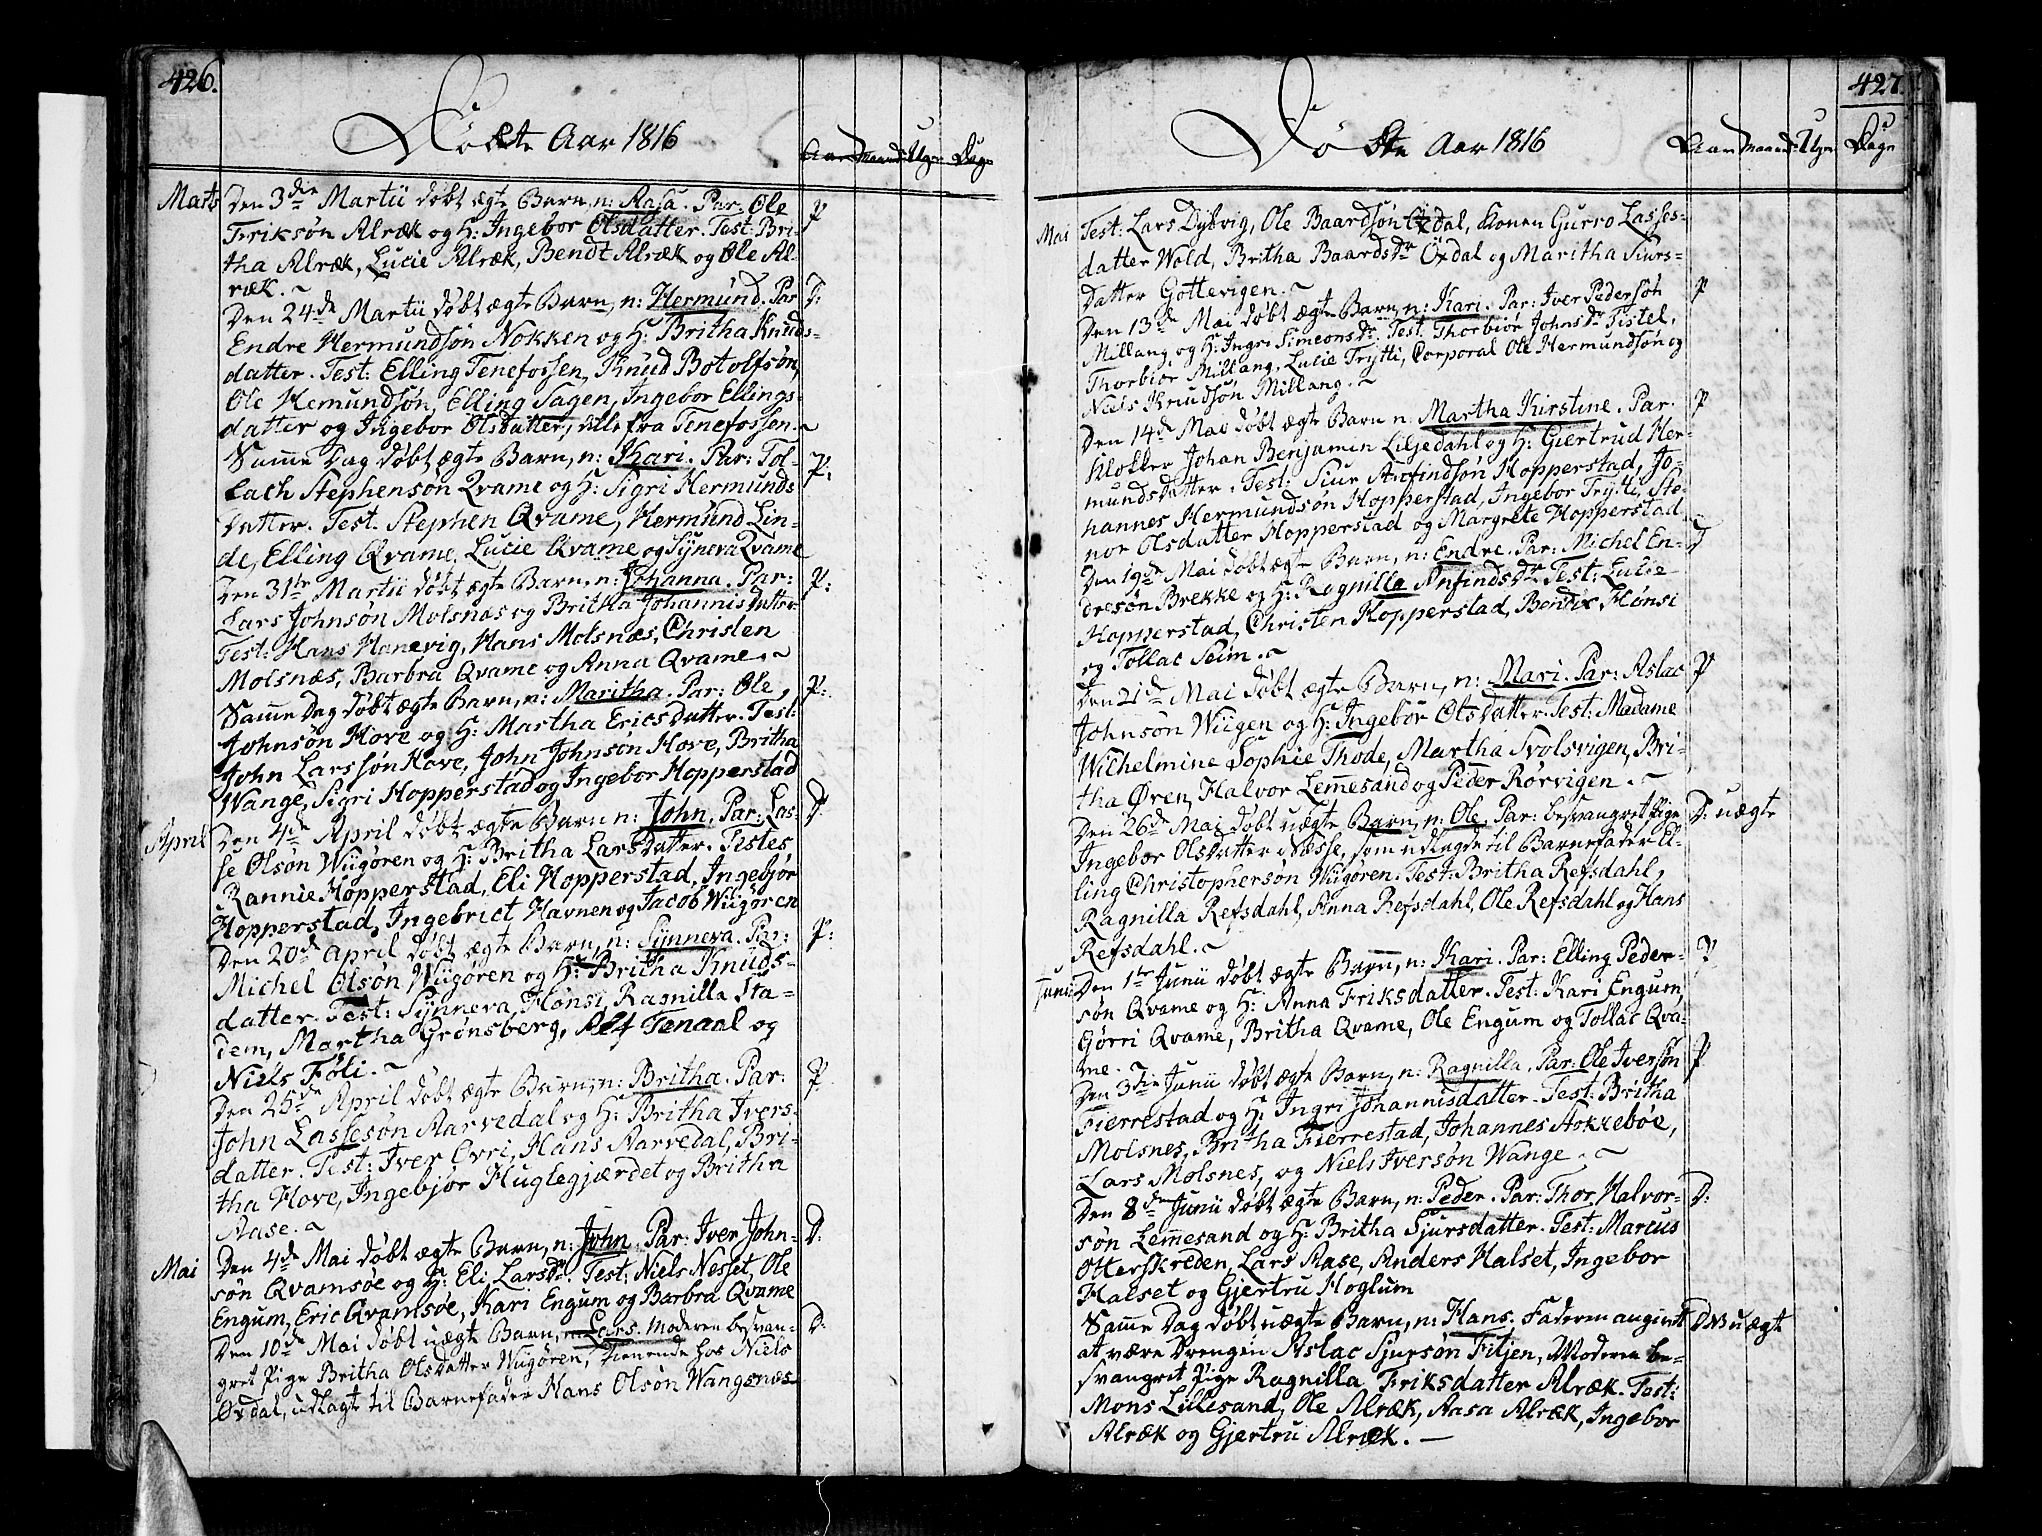 426.
Døbte Aar 1816
Aar Maand: Uger Dage
Marts Den 3die Martii døbt ægte Barn, n: Aasa. Par. Ole P
Friksøn Alræk og H: Ingebor Olsdatter. Test: Bri-
tha Alræk, Lucie Alræk, Bendt Alræk og Ole Al-
ræk. ~
Den 24de Martii døbt ægte Barn, n: Hermund. Par D:
Endre Hermundsøn Nokken og H: Britha Knuds-
datter. Test: Elling Tenefossen, Knud Botolfsøn,
Ole Hemundsøn, Elling Sagen, Ingebor Ellings-
datter og Ingebor Olsdatter, alle fra Tenefossen. ~
Samme Dag døbt ægte Barn, n: Kari. Par: Tol- P:
lach Stephensøn Qvame og H: Sigri Hermunds
datter. Test. Stephen Qvame, Hermund Lin-
de, Elling Qvame, Lucie Qvame og Syneva Qvame
Den 31te Martii døbt ægte Barn, n: Johanna. Par: P:
Lars Johnsøn Molsnæs og Britha Johannisdatter
Test: Hans Hanevig, Hans Molsnæs, Christen
Molsnæs, Barbra Qvame og Anna Qvame. ~
Samme Dag døbt ægte Barn, n: Maritha. Par: Ole P:
Johnsøn Hove og H: Martha Ericsdatter. Test:
John Larssøn Hove, John Johnsøn Hove, Britha
Wange, Sigri Hopperstad og Ingebor Hopperstad
April Den 4de April døbt ægte Barn n: John. Par: Las- D
se Olsøn Wiigøren og H: Britha Larsdatter. Testes
Rannie Hopperstad, Eli Hopperstad, Ingebjør
Hopperstad, Ingebrict Havnen og Jacob Wiigøren
Den 20de April døbt ægte Barn, n: Synneva. Par: P:
Michel Olsøn Wiigøren og H: Britha Knuds-
datter. Test: Synneva Hønsi, Ragnilla Sta-
dem, Martha Grønsberg, Alf Tenaal og
Niels Føli. ~
Den 25de April døbt ægte Barn, n: Britha. Par: P.
John Lassesøn Aarvedal og H: Britha Ivers-
datter. Test: Iver Ovri, Hans Aarvedal, Bri-
tha Hove, Ingebjør Huglegjærdet og Britha
Aase. ~
Mai Den 4de Mai døbt ægte Barn, n: John. Par: Iver John- D:
søn Qvamsøe og H: Eli Larsdr. Test: Niels Nesset, Ole
Engum, Eric Qvamsøe, Kari Engum og Barbra Qvame
Den 10de Mai døbt uægte Barn, n: Lars. Moderen besvan- D:
gret Pige Britha Olsdatter Wiigøren, tienende hos Niels
Øxdal, udlagte til Barnefader Hans Olsøn Wangsnæs
427.
Døbte Aar 1816
Aar Maand: Uger Dage
Mai Test: Lars Dybvig, Ole Baardsøn Øxdal, Konen Gurro Lasses-
datter Wold, Britha Baardsdr Øxdal og Maritha Siurs-
datter Gottevigen. ~
Den 13de Mai døbt ægte Barn, n: Kari. Par: Iver Pedersøn P
Millang og H: Ingri Simeonsdr. Test. Thorbiør Johnsdr Tistel,
Thorbiør Millang, Lucie Trytti, Corporal Ole Hermundsøn og
Niels Knudsøn Millang. ~
Den 14de Mai døbt ægte Barn n: Martha Kirstine. Par. P
Klokker Johan Benjamin Liljedahl og H: Giertrud Her-
mundsdatter. Test: Siur Anfindsøn Hopperstad, Jo-
hannes Hermundsøn Hopperstad, Ingebor Trytti, Ste-
nor Olsdatter Hopperstad og Margrete Hopperstad.
Den 19de Mai døbt ægte Barn, n: Endre. Par: Michel En- D
dresøn Brekke og H: Ragnilla Anfindsdr. Test: Lucie
Hopperstad, Christen Hopperstad, Bendix Hønsi
og Tollac Seim. ~
Den 21de Mai døbt ægte Barn, n: Mari. Par: Aslac P
Johnsøn Wiigen og H: Ingebor Olsdatter. Test: Madame
Wilhelmine Sophie Thode, Martha Svolsvigen, Bri-
tha Øren, Halvor Lemmesand og Peder Rørvigen. ~
Den 26de Mai døbt uægte Barn, n: Ole. Par: besvangret Pige D: uægte
Ingebor Olsdatter Nesse, som udlagde til Barnefader El-
ling Christophersøn Wiigøren. Test: Britha Refsdahl,
Ragnilla Refsdahl, Anna Refsdahl, Ole Refsdahl og Hans
Refsdahl. ~
Junii Den 1te Junii døbt ægte Barn, n: Kari. Par: Elling Peder- P
søn Qvame og H: Anna Friksdatter. Test: Kari Engum,
Gjørri Qvame, Britha Qvame, Ole Engum og Tollac Qva-
me. ~
Den 3die Junii døbt ægte Barn, n: Ragnilla. Par: Ole Iversøn P
Fierrestad og H: Ingri Johannisdatter. Test: Britha
Molsnes, Britha Fierrestad, Johannes Stokkebøe,
Lars Molsnes, og Niels Iversøn Wange. ~
Den 8de Junii døbt ægte Barn, n: Peder. Par: Thor Halvor- D:
søn Lemmesand og H: Britha Sjursdatter. Test: Marcus
Otterskreden, Lars Aase, Anders Halset, Ingebor
Halset og Gjertru Hoglum
Samme Dag døbt uægte Barn, n: Hans. Faderen angivet D uægt
at være Drengen Aslac Sjursøn Filjen, Moderen be-
svangrit Pige Ragnilla Friksdatter Alræk. Test:
Mons Lillesand, Ole Alræk, Aasa Alræk, Ingebor
Alræk og Gjertru Alræk. —